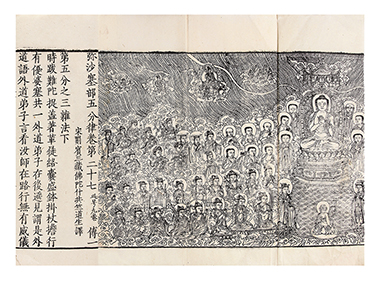 弥沙塞部五分律卷第二十七 傅一
宋罽賓三藏佛陀什共竺道生譯
第五分之三雜法下
時跋難陀捉蓋著革屣絡囊盛鉢掛杖擔行
有優婆塞共一外道弟子在後遙見謂是外
道語外道弟子言看汝師在路行無有威儀